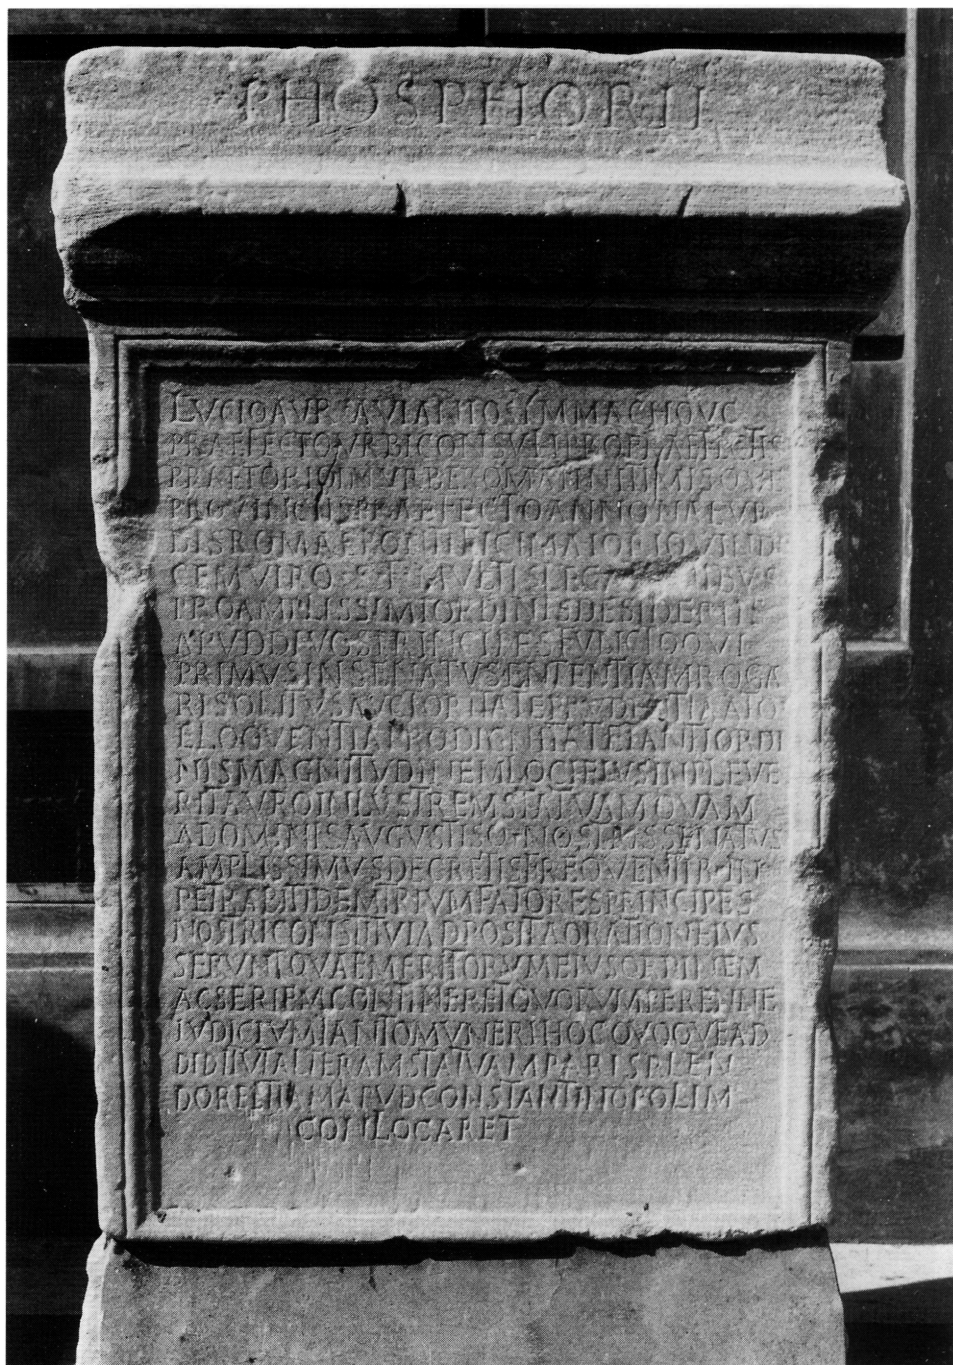 PHOSPHORII
LVCIO AVR AVIANIO SYMMACHO V C
PRAEFECTO VRBI CONSVLI PRO PRAEFECTIS
PRAETORIO IN VRBE ROMA FINITIMISQVE
PROVINCIIS PRAEFECTO ANNONAE VR
BIS ROMAE PONTIFICI MAIORI QVINDE
CEMVIRO S F MVLTIS LEGATIONIBVS
PRO AMPLISSIMI ORDINIS DESIDERIIS
APVD DIVOS PRINCIPES FVNCTO QVI
PRIMVS IN SENATV SENTENTIAM ROGA
RI SOLITVS AVCTORITATE PRVDENTIA ATQ
ELOQVENTIA PRO DIGNITATE TANTI ORDI
NIS MAGNITVDINEM LOCI EIVS INPLEVE
RIT AVRO INLVSTREM STATVAM QVAM
A DOMINIS AVGVSTISQ NOSTRIS SENATVS
AMPLISSIMVS DECRETIS FREQVENTIB IN
PETRABIT IDEM TRIVMFATORES PRINCIPES
NOSTRI CONSTITVI ADPOSITA ORATIONE IVS
SERVNT QVAE MERITORVM EIVS ORDINEM
AC SERIEM CONTINERET QVORVM PERENNE
IVDICIVM TANTO MVNERI HOC QVOQVE AD
DIDIT VT ALTERAM STATVAM PARI SPLEN
DORE ETIAM APVD CONSTANTINOPOLIM
CONLOCARET